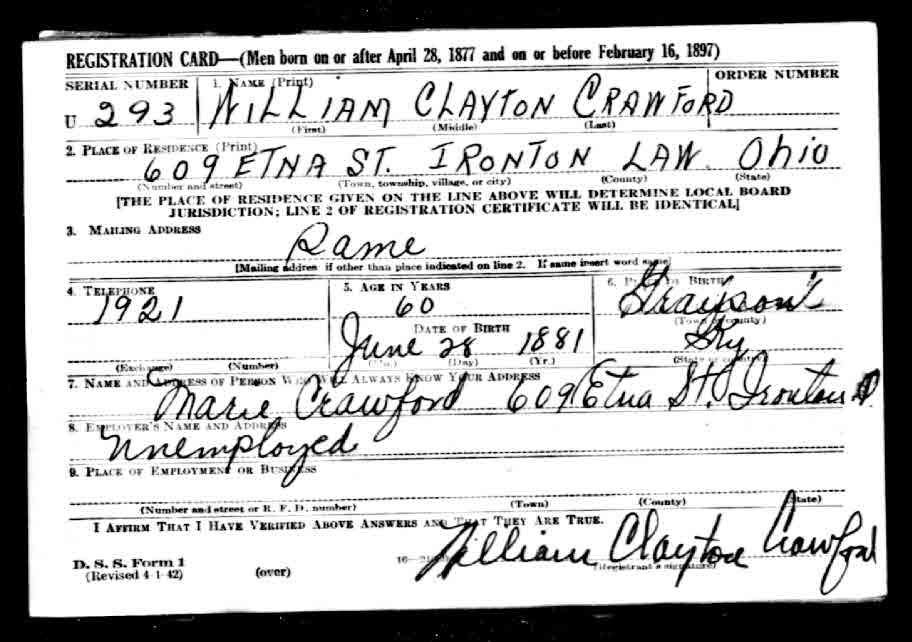 REGISTRATION CARD—(Men born on or after April 28, 1877 and on or before February 16, 1897)
SERIAL NUMBER 1. NAME (Print) ORDER NUMBER
U 293 WILLIAM CLAYTON CRAWFORD
(First) (Middle) (Last)
2. PLACE OF RESIDENCE (Print)
609 ETNA ST. IRONTON LAW. Ohio
(Number and street) (Town, township, village, or city) (County) (State)
[THE PLACE OF RESIDENCE GIVEN ON THE LINE ABOVE WILL DETERMINE LOCAL BOARD
JURISDICTION; LINE 2 OF REGISTRATION CERTIFICATE WILL BE IDENTICAL]
3. MAILING ADDRESS
Same
[Mailing address if other than place indicated on line 2. If same insert word same]
4. TELEPHONE 5. AGE IN YEARS 6. PLACE OF BIRTH
1921 60 Grayson
(Town or county)
DATE OF BIRTH
June 28 1881 Ky
(Exchange) (Number) (Mo.) (Day) (Yr.) (State or country)
7. NAME AND ADDRESS OF PERSON WHO WILL ALWAYS KNOW YOUR ADDRESS
Marie Crawford 609 Etna St. Ironton O.
8. EMPLOYER'S NAME AND ADDRESS
Unemployed
9. PLACE OF EMPLOYMENT OR BUSINESS
(Number and street or R. F. D. number) (Town) (County) (State)
I AFFIRM THAT I HAVE VERIFIED ABOVE ANSWERS AND THAT THEY ARE TRUE.
William Clayton Crawford
D. S. S. Form 1
(Revised 4-1-42) (over) (Registrant's signature)